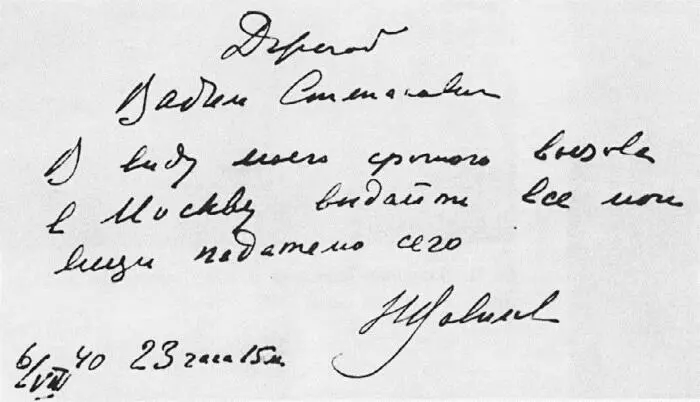 Дорогой
Вадим Степанович
В виду моего срочного вызова
в Москву выдайте все мои
вещи подателю сего
Н Вавилов
6/VIII 40 23 часа 15 м